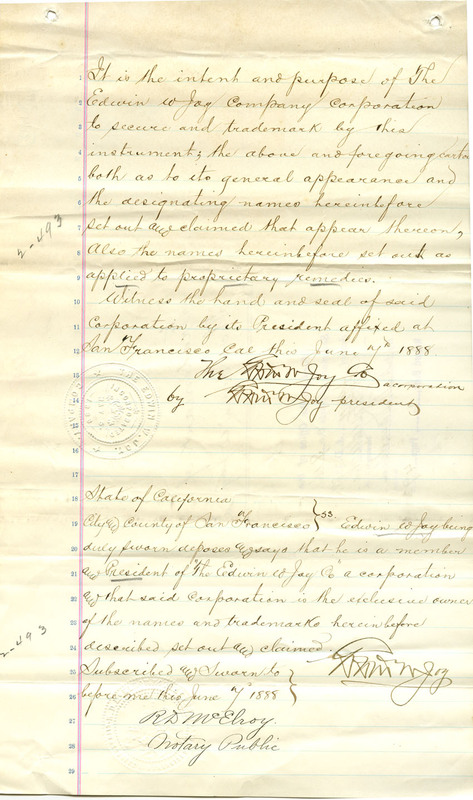 1 It is the intent and purpose of The
2 Edwin W Joy Company Corporation
3 to secure and trademark by this
4 instrument; the above and foregoing carton
5 both as to its general appearance and
6 the designating names hereinbefore
7 set out and claimed that appear thereon,
8 Also the names hereinbefore set out as
9 applied to proprietary remedies.
10 Witness the hand and seal of said
11 Corporation by its President affixed at
12 San Francisco Cal this June 7th 1888.
13 The Edwin W Joy Co a corporation
14 by Edwin W Joy president
15
16
17
18 State of California
19 City and County of San Francisco } SS. Edwin W Joy being
20 duly sworn deposes and says that he is a member
21 and President of "The Edwin W Joy Co" a corporation
22 and that said corporation is the exclusive owner
23 of the names and trademarks hereinbefore
24 described set out and claimed. Edwin W Joy
25 Subscribed and Sworn to
26 before me this June 7th 1888 }
27 R D McElroy.
28 Notary Public
29
2-493
2-493
THE EDWIN W. JOY